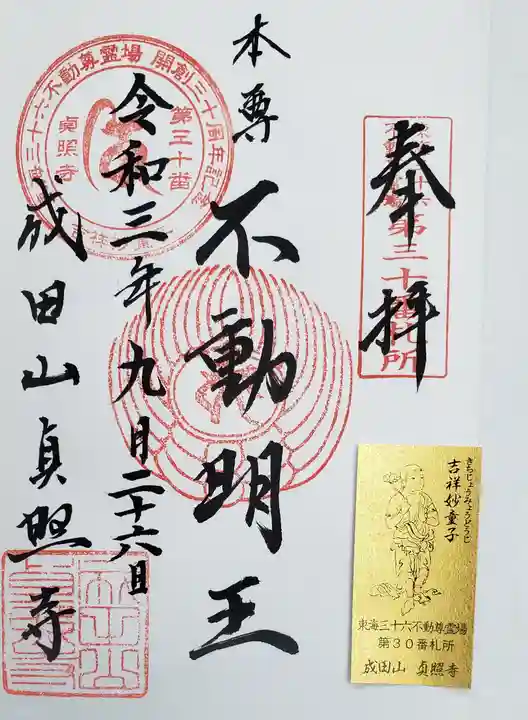 奉拝
第三十番札所
本尊
不動明王
三十六不動尊霊場 開創三十周年記念
第三十番
貞照寺
令和三年九月二十六日
成田山貞照寺
きちじょうみょうどうじ
吉祥妙童子
東海三十六不動尊霊場
第30番札所
成田山 貞照寺